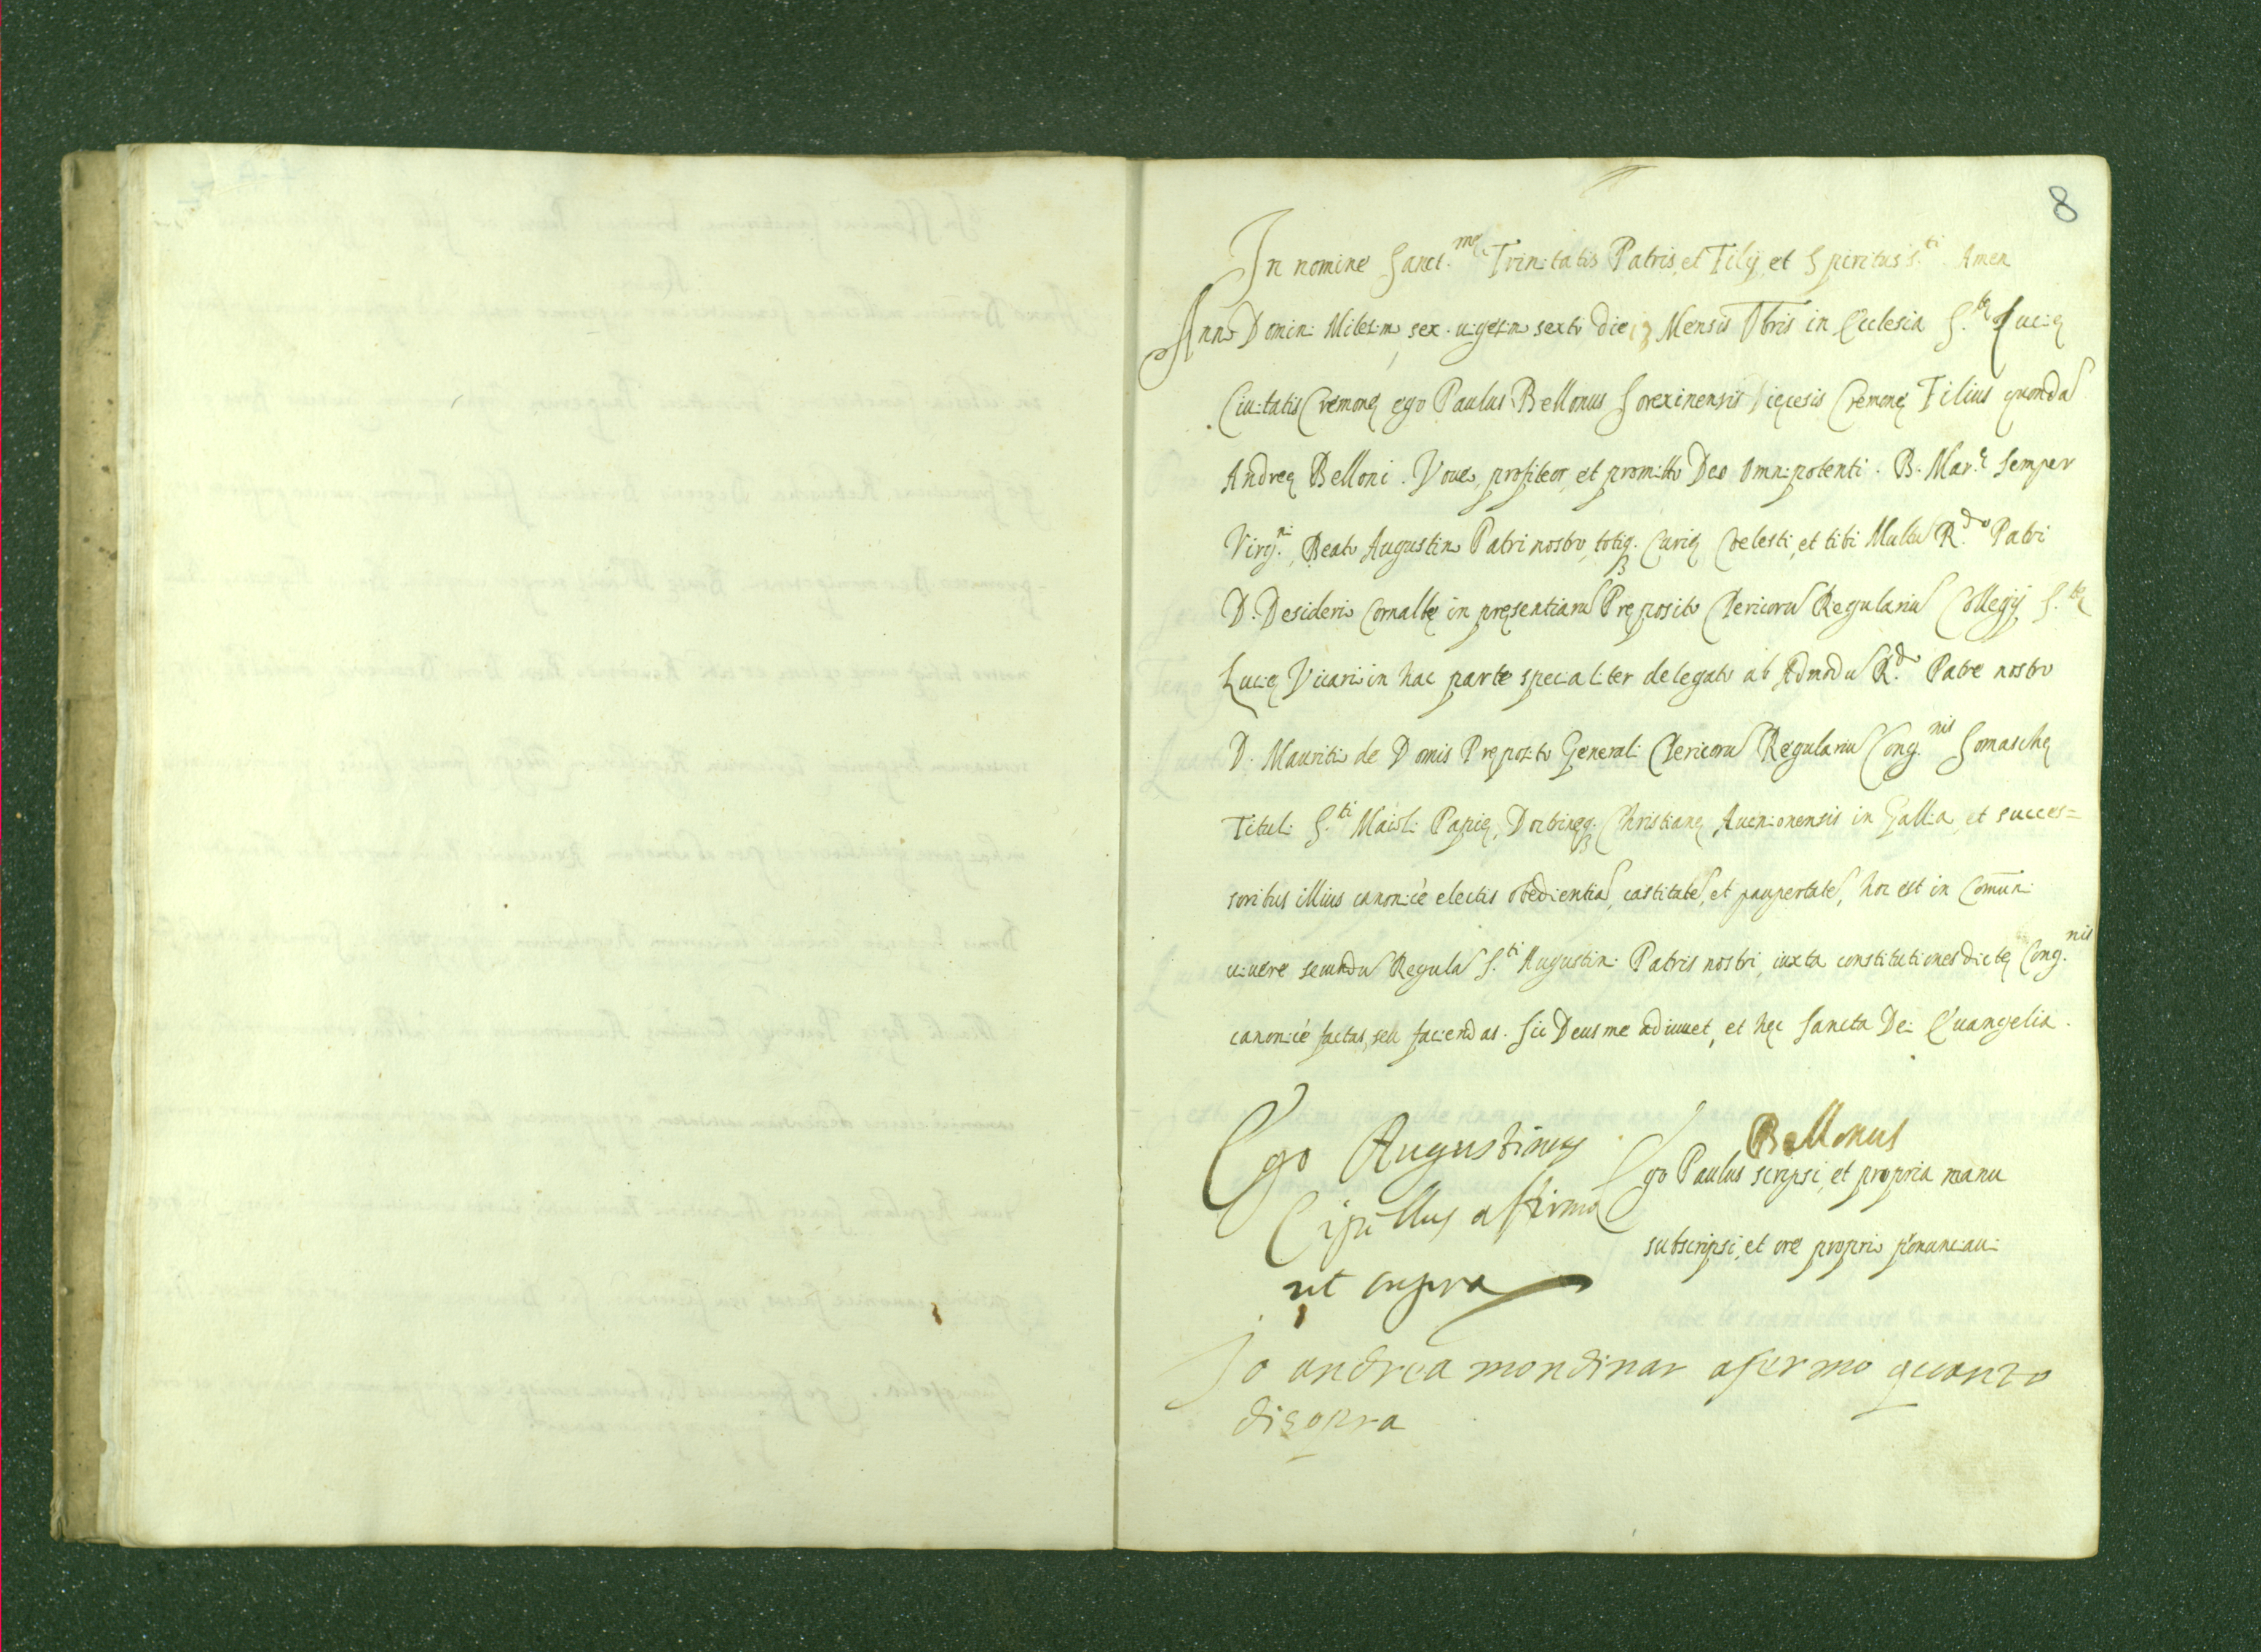 8
In nomine Sanct.mę Trinitatis Patris, et Filij, et Spiritus S.ti Amen
Anno Domini Milesimo sex. uigesimo sexto die 13 Mensis Obris in Ecclesia S.tę Lucię
Ciuitatis Cremonę ego Paulus Bellonus Sorexinensis Dięcesis Cremonę Filius quondã
Andreę Belloni. Voueo, profiteor, et promitto Deo Omnipotenti. B. Mar.ę Semper
Virg.ni, Beato Augustino Patri nostro, totiq. Curię Coelesti, et tibi Multũ R.do Patri
D. Desiderio Cornalbę in pręsentiarũ Pręposito Clericorũ Regulariũ Collegij S.tę
Lucię Vicario in hac parte specialiter delegato ab Admodũ R.do Patre nostro
D. Mauritio de Domis Pręposito Generali Clericorũ Regulariũ Cong.nis Somaschę
Tituli S.ti Maioli Papię, Doctrinęq. Christianę Auenionensis in Gallia, et succes=
soribus illius canonicè electis obedientiã, castitatẽ, et paupertatẽ, hoc est in Comũni
uiuere secundũ Regulã S.ti Augustini Patris nostri, iuxta constitutiones dictę Cong.nis
canonicè factas, seu faciendas. Sic Deus me adiuuet, et hęc Sancta Dei Euangelia.
Bellonus
Ego Paulus scripsi, et propria manu
subscripsi, et ore proprio pronunciaui
Ego Augustinus
affirmo
ut supra
Io andrea mondinar afermo quanto
disopra